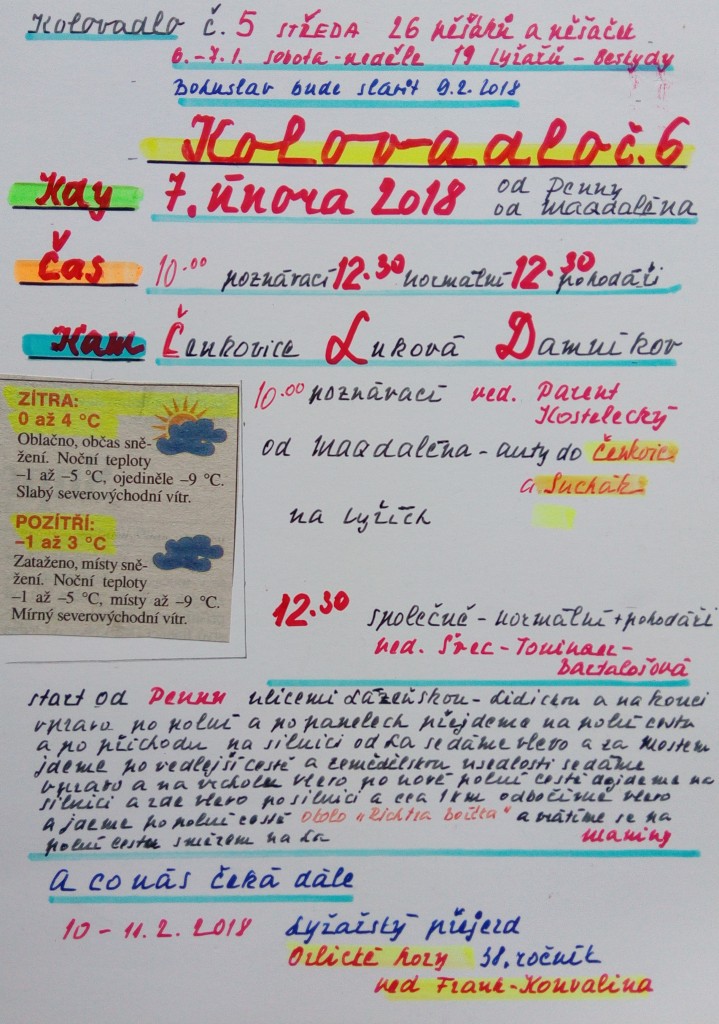 Kolovadlo č. 5 STŘEDA 26 pěšáků a pěšaček
6.-7.1. sobota-neděle 19 lyžařů - Beskydy
Bohuslav bude slavit 9.2.2018
Kolovadlo č. 6
Kdy 7. února 2018 od Penny
od Magdaléna
Čas 10.00 poznávací 12.30 normální 12.30 pohodáři
Kam Čenkovice Luková Damníkov
10.00 poznávací ved. Parent
Kostelecký
od Magdaléna - auty do Čenkovic
a Suchák
na lyžích
ZÍTRA:
0 až 4 °C
Oblačno, občas sně-
žení. Noční teploty
–1 až –5 °C, ojediněle –9 °C.
Slabý severovýchodní vítr.
POZÍTŘÍ:
–1 až 3 °C
Zataženo, místy sně-
žení. Noční teploty
–1 až –5 °C, místy až –9 °C.
Mírný severovýchodní vítr.
12.30 společně - normální + pohodáři
ved. Šrec - Tominac -
Bartalošová
start od Penny ulicemi Lázeňskou - Lidickou a na konci
vpravo po polní a po panelech přejdeme na polní cestu
a po příchodu na silnici od La se dáme vlevo a za mostem
jdeme po vedlejší cestě a zemědělskou usedlostí se dáme
vpravo a na vrcholu vlevo po nové polní cestě dojdeme na
silnici a zde vlevo po silnici a cca 1km odbočíme vlevo
a jdeme po polní cestě okolo „Richtra božka" a vrátíme se na
polní cestu směrem na La Mariny
A co nás čeká dále
10 - 11.2.2018 Lyžařský přejezd
Orlické hory 38. ročník
ved Frank - Konvalina